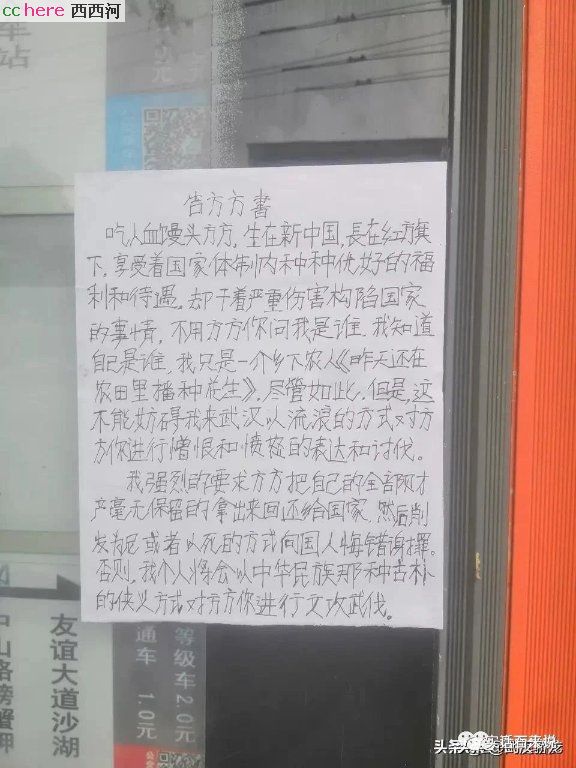 cchere 西西河
车
站
元
告方方書
吃人血馒头方方，生在新中国，長在红旗
下，享受着国家体制内种种优好的福
利和待遇，却干着严重伤害构陷国家
的事情，不用方方你问我是谁，我知道
自己是谁，我只是一个乡下农人《昨天还在
农田里播种花生》，尽管如此，但是，这
不能妨碍我来武汉以流浪的方式对方
方你进行憎恨和愤怒的表达和讨伐。
我强烈的要求方方把自己的全部财
产毫无保留的拿出来回还给国家，然后削
发为尼或者以死的方式向国人悔错谢罪。
否则，我个人将会以中华民族那种古朴
的侠义方式对方方你进行文攻武伐。
友谊大道沙湖
中山路螃蟹岬
普通车 1.0元
等级车2.0元
头条